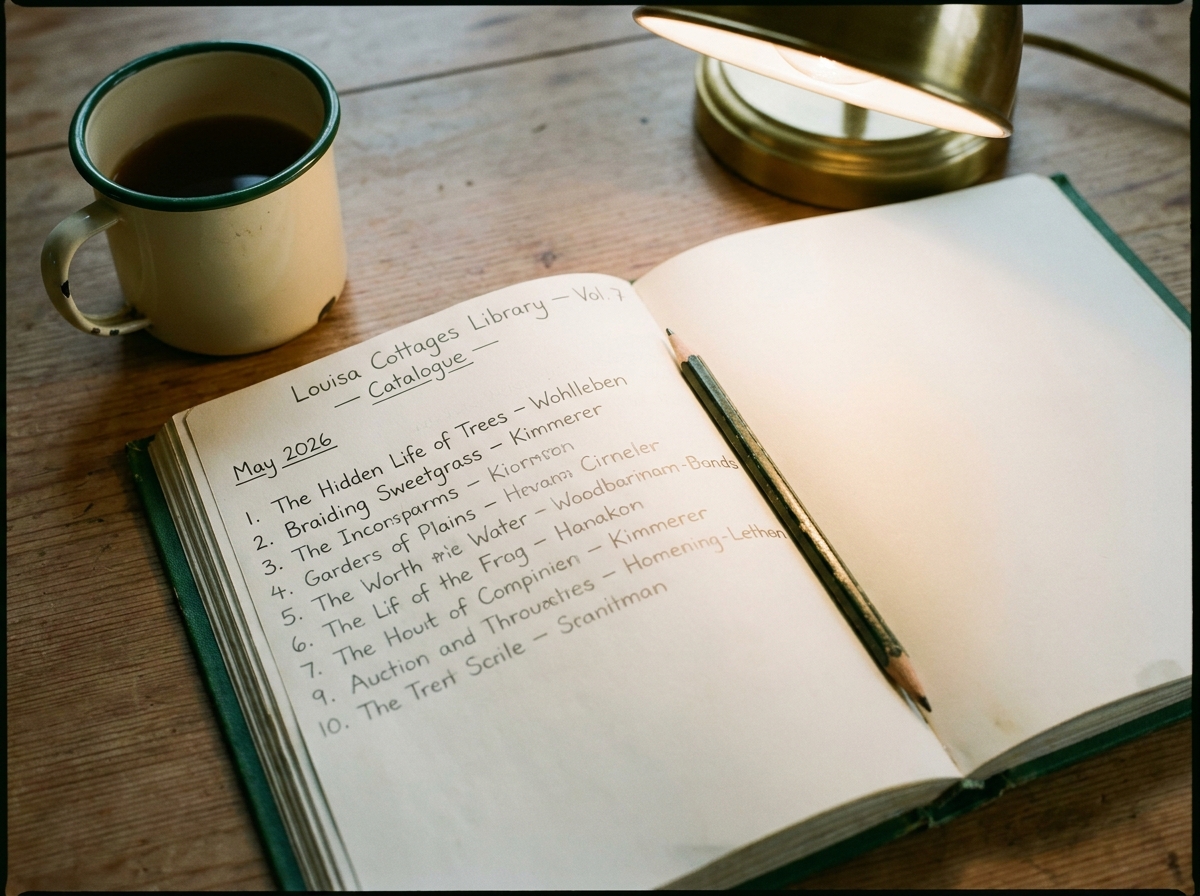 Louisa Cottages Library – Vol. 7
— Catalogue —
May 2026
1. The Hidden Life of Trees – Wohlleben
2. Braiding Sweetgrass – Kimmerer
3. The Inconsparms –
4. Garders of Plains – Cirneler
5. The Worth Water – Woodbarinam-Bands
6. The Lif of the Frog – Hanakon
7. The Houit of Compinien – Kimmerer
9. Auction and – Homening-Lethen
10. The Trert Scrile – Scanitman